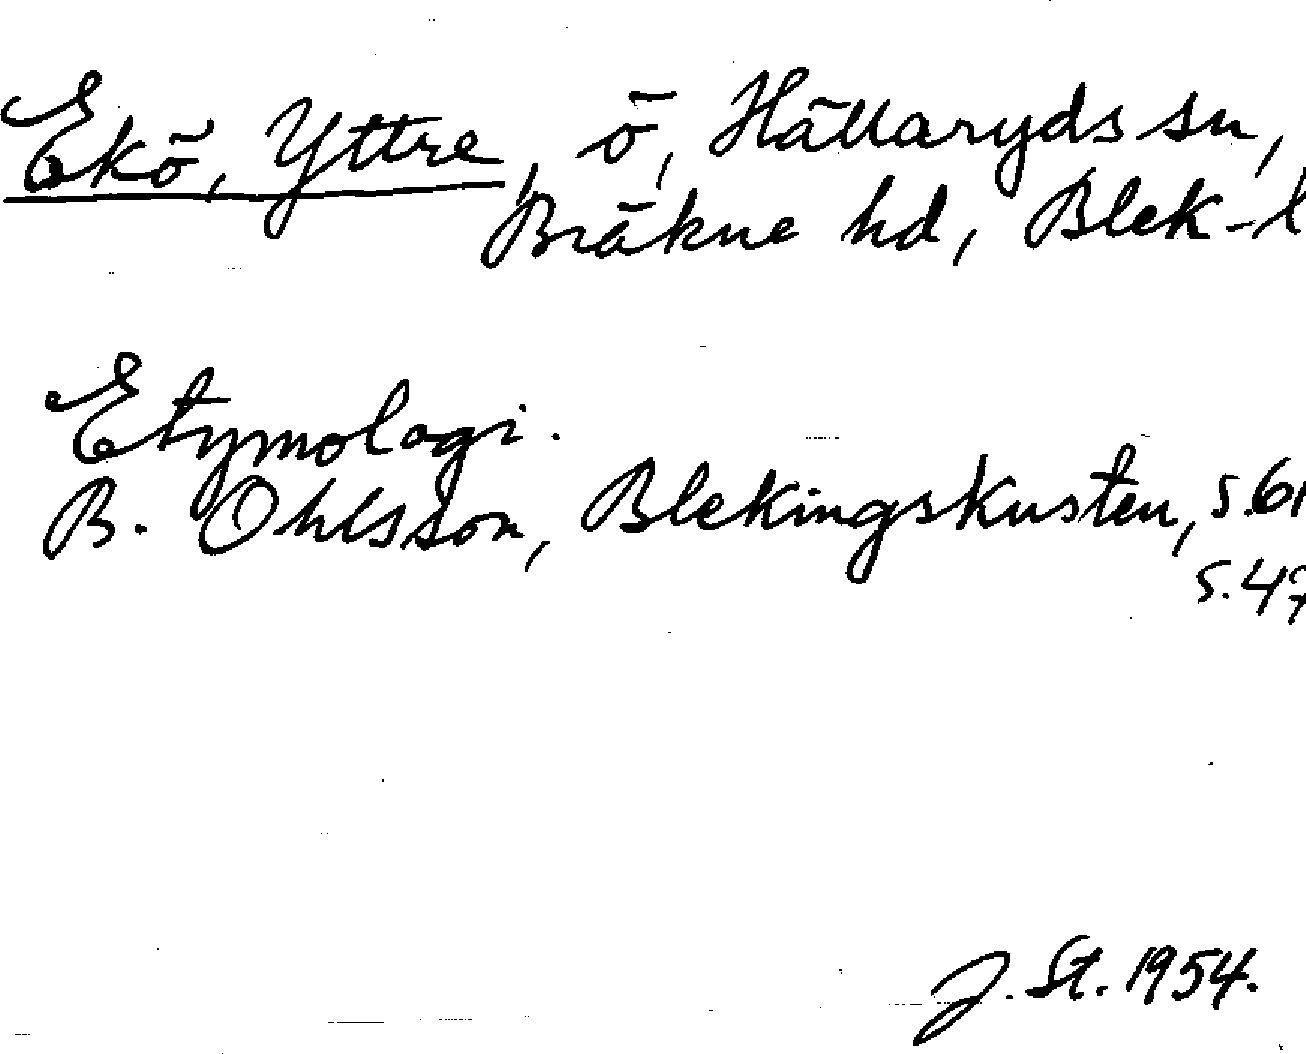 Ekö, Yttre, ö, Hällaryds sn,
Bräkne hd, Blek-l
Etymologi.
B. Ohlsson, Blekingskusten, s.61
s.47
J. St. 1954.